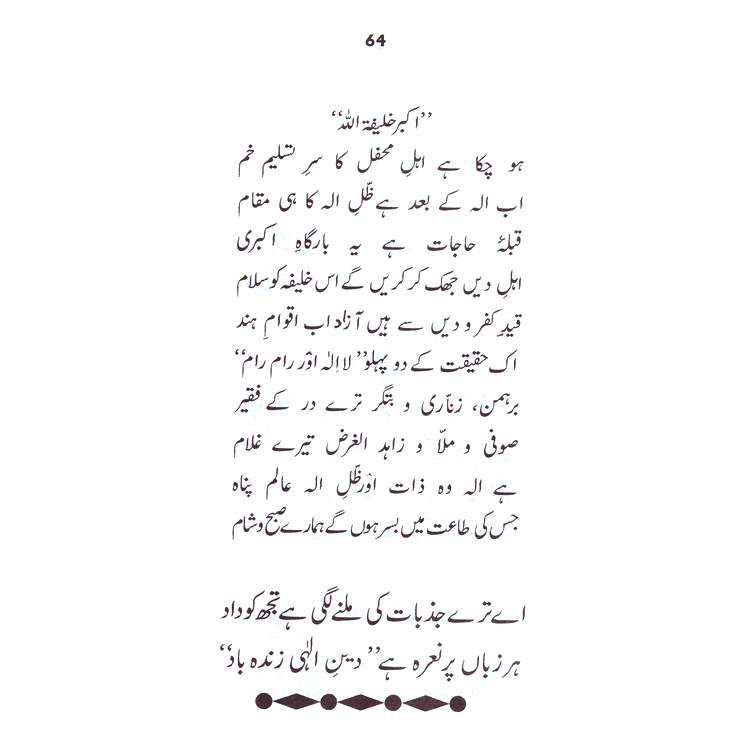 64
”اکبر خلیفۃ اللہ“
ہو چکا ہے اہلِ محفل کا سرِ تسلیم خم
اب الہ کے بعد ہے ظِلِّ الہ کا ہی مقام
قبلۂ حاجات ہے یہ بارگاہِ اکبری
اہلِ دیں جھک کر کریں گے اس خلیفہ کو سلام
قیدِ کفر و دیں سے ہیں آزاد اب اقوامِ ہند
اک حقیقت کے دو پہلو ”لا اِلٰہ اوْر رام رام“
برہمن، زنّاری و بتگر ترے در کے فقیر
صوفی و ملّا و زاہد الغرض تیرے غلام
ہے الہ وہ ذات اوْر ظِلِّ الہ عالم پناہ
جس کی طاعت میں بسر ہوں گے ہمارے صبح و شام
اے ترے جذبات کی ملنے لگی ہے تجھ کو داد
ہر زباں پر نعرہ ہے ”دینِ الٰہی زندہ باد“